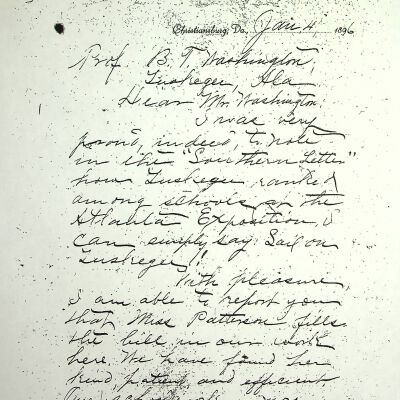 Christiansburg, Va., Jan 4, 1896
Prof. B. T. Washington,
Tuskegee, Ala
Dear Mr. Washington:
I was very
proud, indeed, to note
in the "Southern Letter"
how Tuskegee ranked
among schools at the
Atlanta Exposition, I
can simply say Sail on
Tuskegee!!
With pleasure,
I am able to report you
that Miss Patterson fills
the bill in our work
here. We have found her
kind, patient, and efficient
Our school